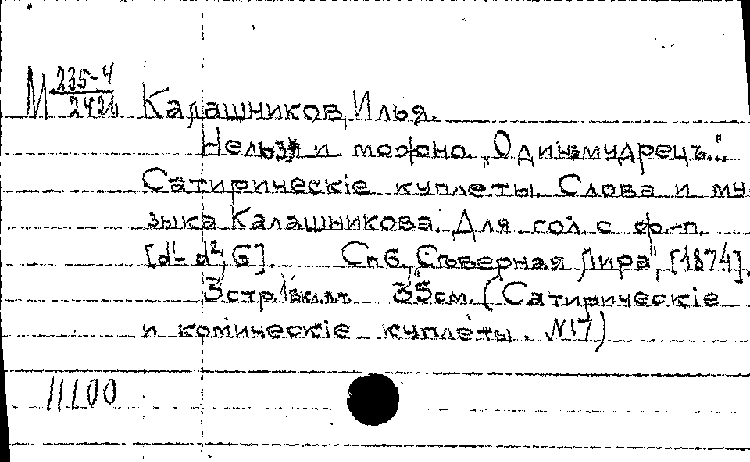 М 235-4
2421 Калашников, Илья.
Нельзя и можно. „Один мудрецъ..."
Сатирическіе куплеты. Слова и му-
зыка Калашникова. Для гол. с ф.-п.
[d¹- d², G]. Спб., „Съверная Лира", [1874].
3 стр. 35 см. (Сатирическіе
и комическіе куплеты. №17)
11100